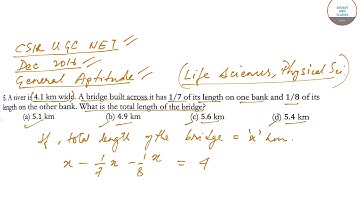 CSIR UGC NET
Dec 2016
General Aptitude
(Life Sciences, Physical Sci)
5. A river is 4.1 km wide. A bridge built across it has 1/7 of its length on one bank and 1/8 of its
length on the other bank. What is the total length of the bridge?
(a) 5.1 km (b) 4.9 km (c) 5.6 km (d) 5.4 km
If, total length of the bridge = 'x' km.
x - 1/7 x - 1/8 x = 4